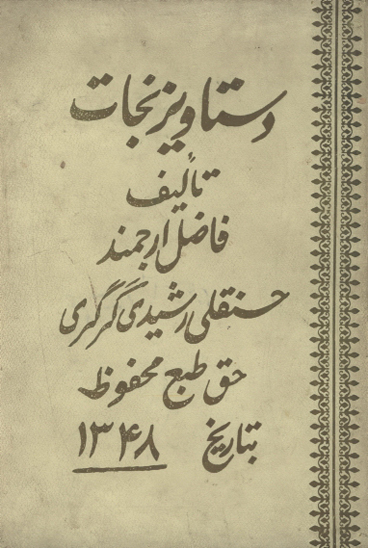 دستاویز نجات
تألیف
فاضل ارجمند
حسنقلی رشیدی گرگری
حق طبع محفوظ
بتاریخ ۱۳۴۸